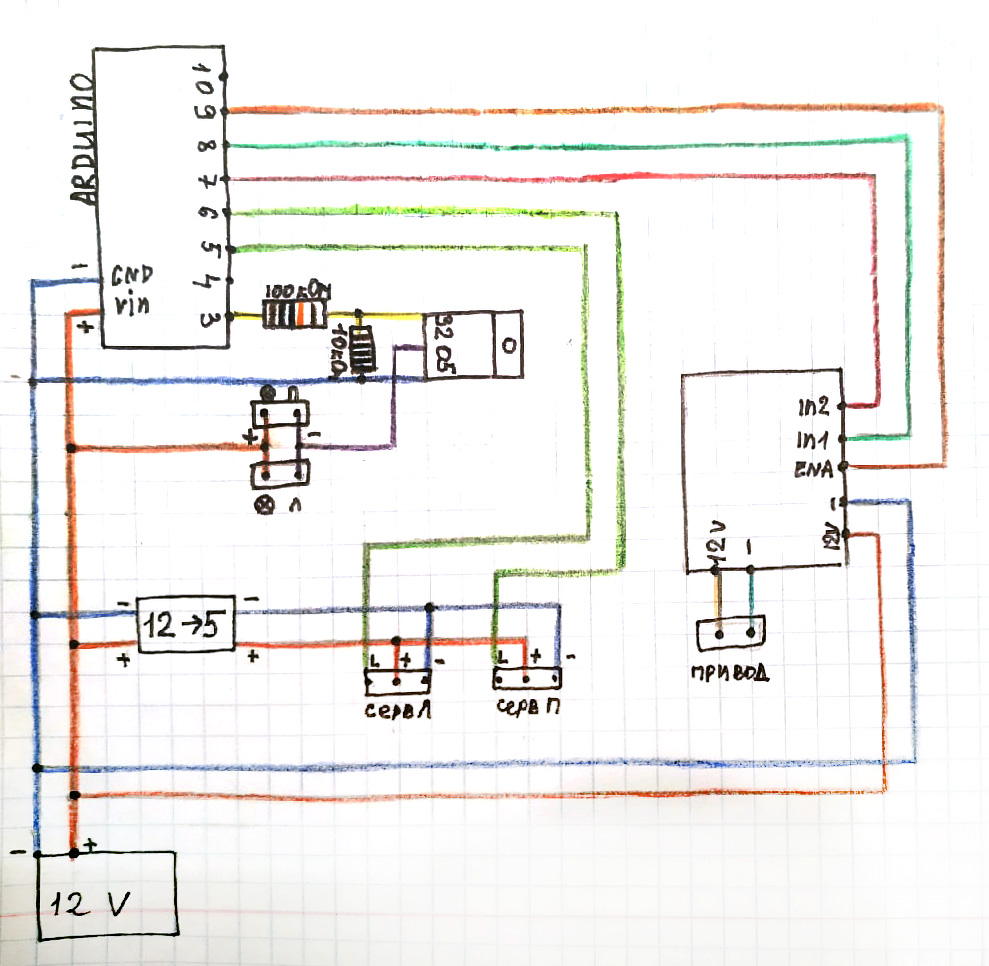 ARDUINO
10
9
8
7
6
5
4
3
- GND
+ vin
100кОм
10кОм
3205
П
+ -
Л
In2
In1
ENA
-
12V
12V -
ПРИВОД
- 12→5 -
+ +
L + -
L + -
СЕРВЛ
СЕРВ П
- +
12 V